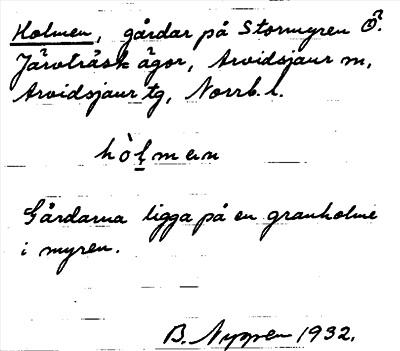 Holmen, gårdar på Stormyren Ö.
Järvträsk ägor, Arvidsjaur sn,
Arvidsjaur tg, Norrb. l.
hòl̲men
Gårdarna ligga på en granholme
i myren.
B. Nyppen 1932.